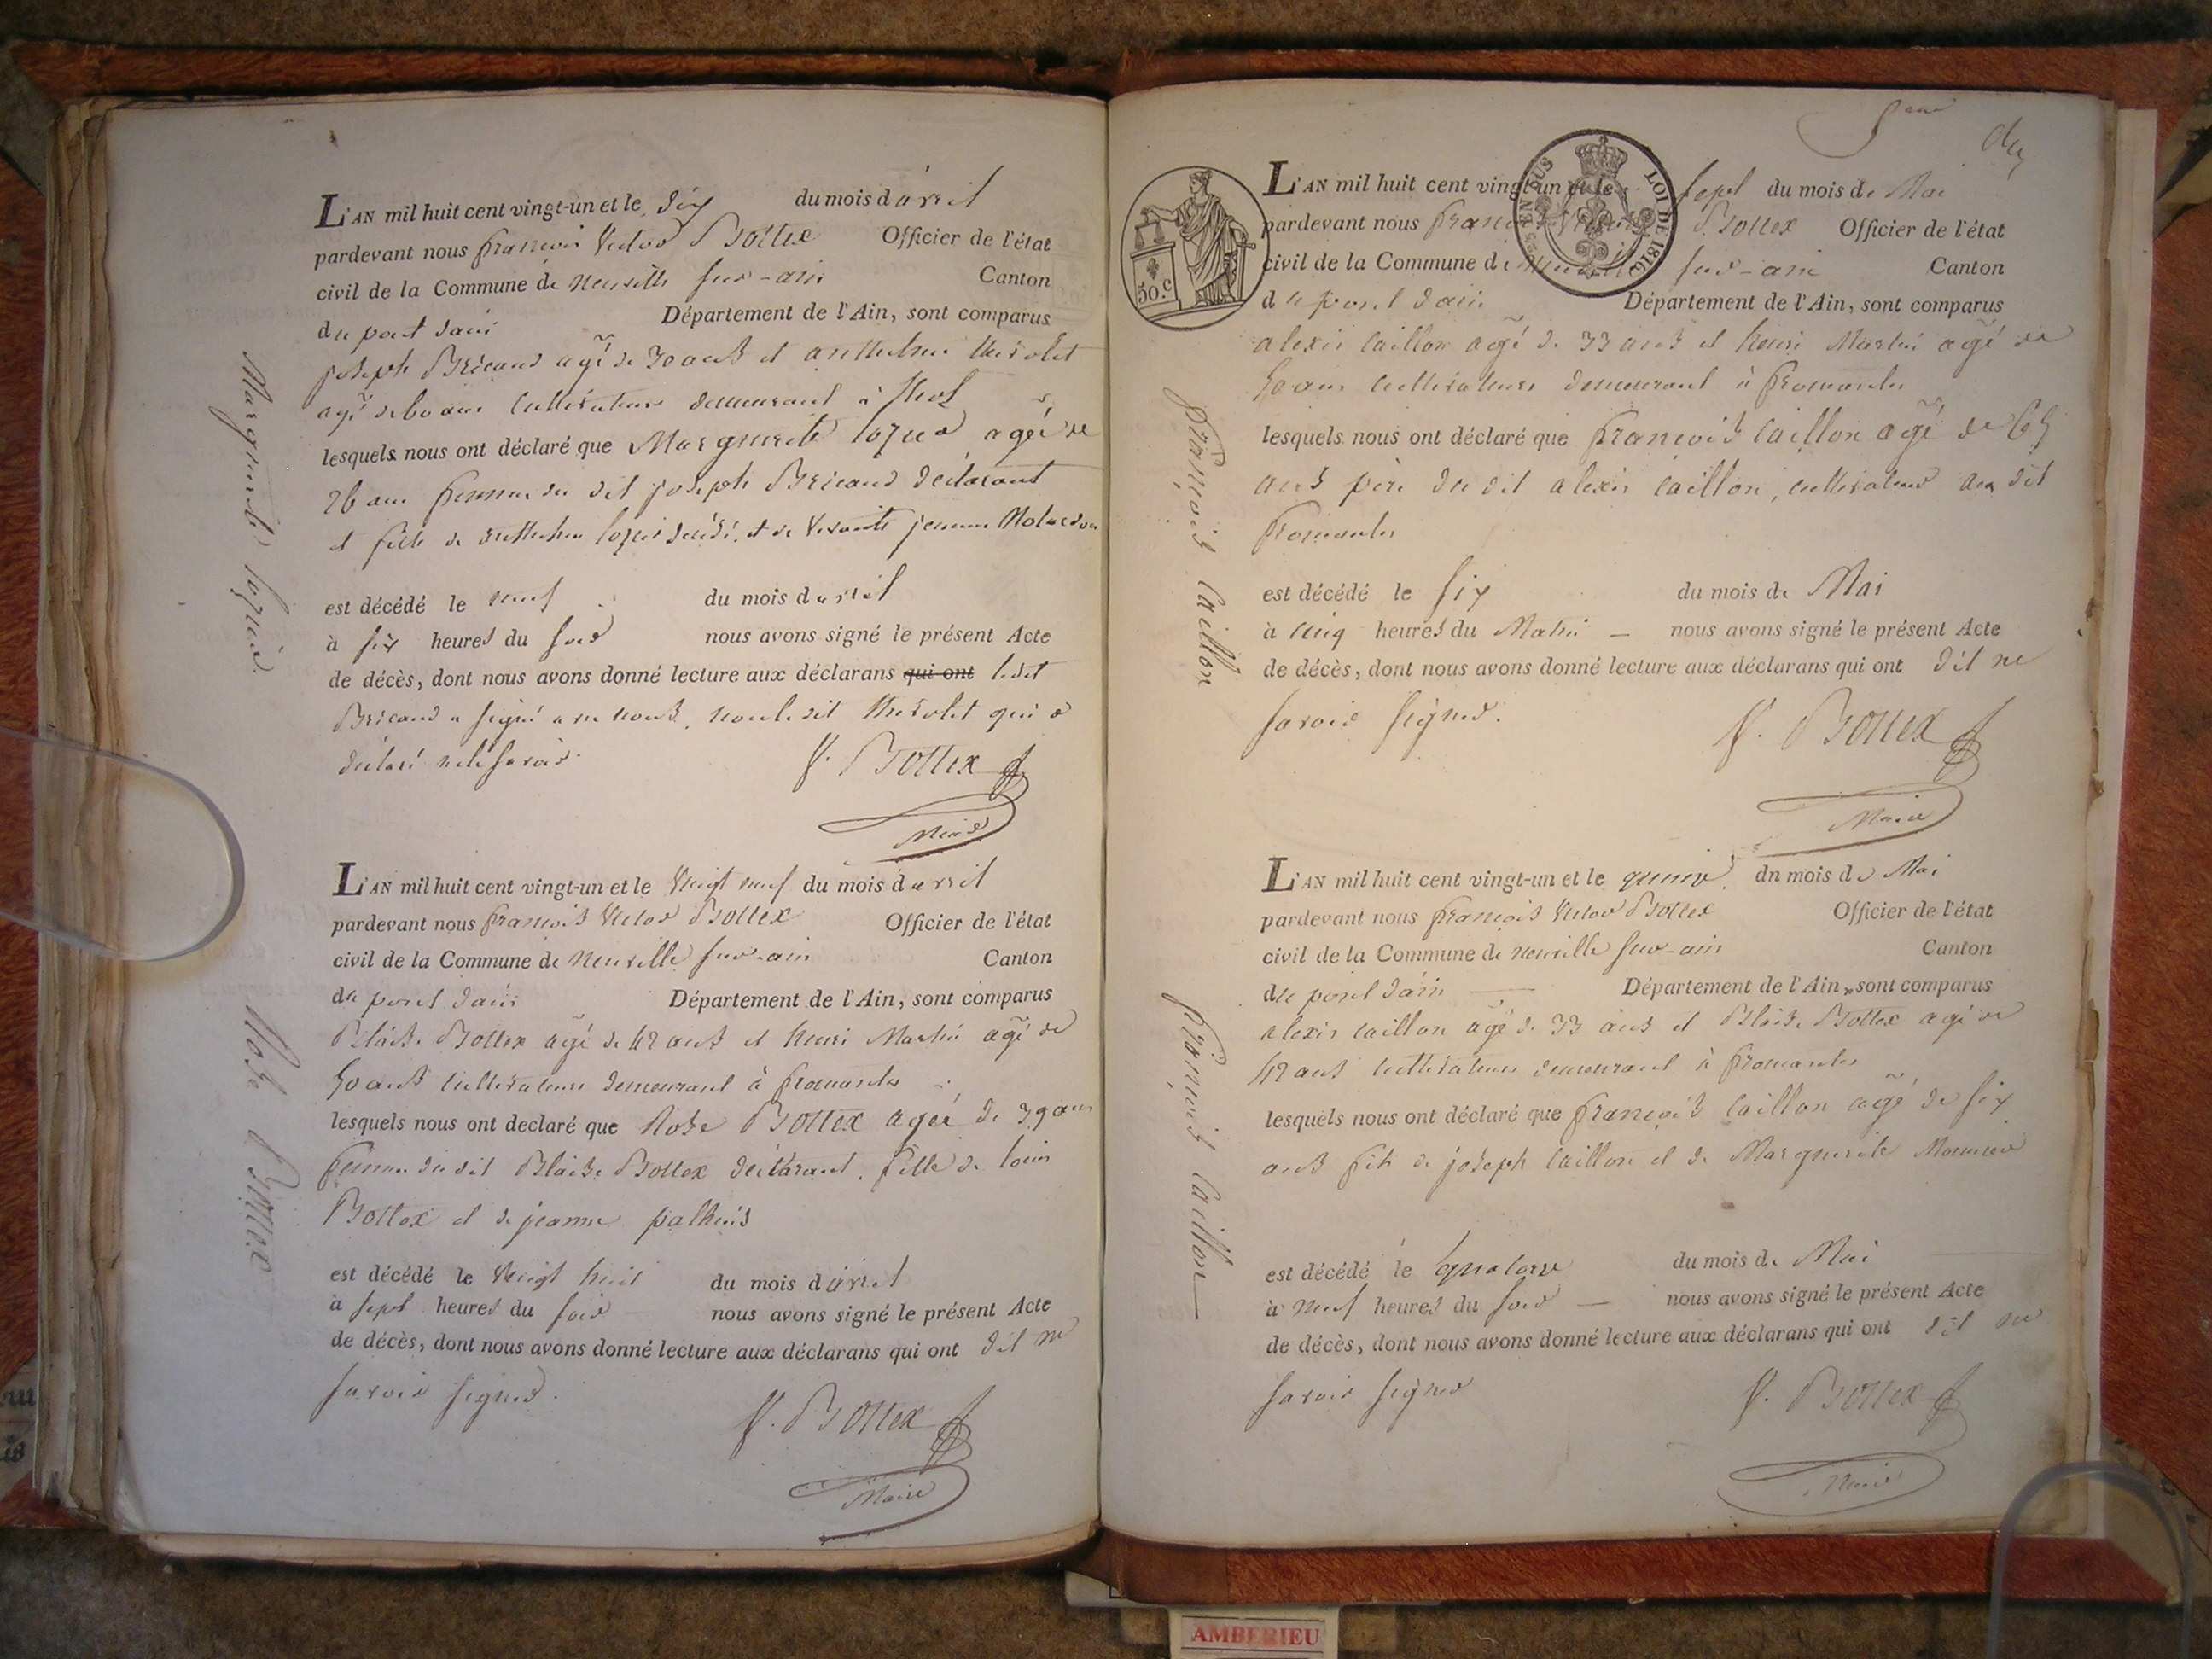 L'AN mil huit cent vingt-un et le dix du mois d'avril
pardevant nous françois Victor Bottex Officier de l'état
civil de la Commune de neuville sur-ain Canton
du pont dain Département de l'Ain, sont comparus
joseph Bricaud agé de 30 ans et anthelme thévolet
agé de 60 ans cultivateurs demeurant à
lesquels nous ont déclaré que Marguerite agée de
26 ans femme du dit joseph Bricaud déclarant
et fille de anthelme décédé, et de vivante jeanne
est décédé le neuf du mois d'avril
à six heures du soir nous avons signé le présent Acte
de décès, dont nous avons donné lecture aux déclarans qui ont ledit
Bricaud a signé avec nous, non ledit thévolet qui a
déclaré ne le savoir.
V. Bottex
Maire
Marguerite
L'AN mil huit cent vingt-un et le vingt neuf du mois d'avril
pardevant nous françois Victor Bottex Officier de l'état
civil de la Commune de neuville sur-ain Canton
du pont dain Département de l'Ain, sont comparus
Blaise Bottex agé de 42 ans et henri Martin agé de
50 ans cultivateurs demeurant à fromentes
lesquels nous ont declaré que Rose Bottex agée de 39 ans
femme du dit Blaise Bottex déclarant, fille de louis
Bottex et de jeanne
est décédé le vingt huit du mois d'avril
à sept heures du soir nous avons signé le présent Acte
de décès, dont nous avons donné lecture aux déclarans qui ont dit ne
savoir signer.
V. Bottex
Maire
Rose Bottex
50.c
EN SUS
LOI DE 1816
L'AN mil huit cent vingt-un et le sept du mois de Mai
pardevant nous françois Victor Bottex Officier de l'état
civil de la Commune de neuville sur-ain Canton
du pont dain Département de l'Ain, sont comparus
alexis caillon agé de 33 ans et henri Martin agé de
50 ans cultivateurs demeurant à fromentes
lesquels nous ont déclaré que françois caillon agé de 65
ans père du dit alexis caillon, cultivateur au dit
fromentes
est décédé le six du mois de Mai
à cinq heures du Matin — nous avons signé le présent Acte
de décès, dont nous avons donné lecture aux déclarans qui ont dit ne
savoir signer.
V. Bottex
Maire
françois caillon
L'AN mil huit cent vingt-un et le quinze dn mois de Mai
pardevant nous françois Victor Bottex Officier de l'état
civil de la Commune de neuville sur-ain Canton
du pont dain — Département de l'Ain, sont comparus
alexis caillon agé de 33 ans et Blaise Bottex agé de
42 ans cultivateurs demeurant à fromentes
lesquels nous ont déclaré que françois caillon agé de six
ans fils de joseph caillon et de Marguerite Monnier
est décédé le quatorze du mois de Mai
à neuf heures du soir — nous avons signé le présent Acte
de décès, dont nous avons donné lecture aux déclarans qui ont dit ne
savoir signer
V. Bottex
Maire
françois caillon
AMBERIEU